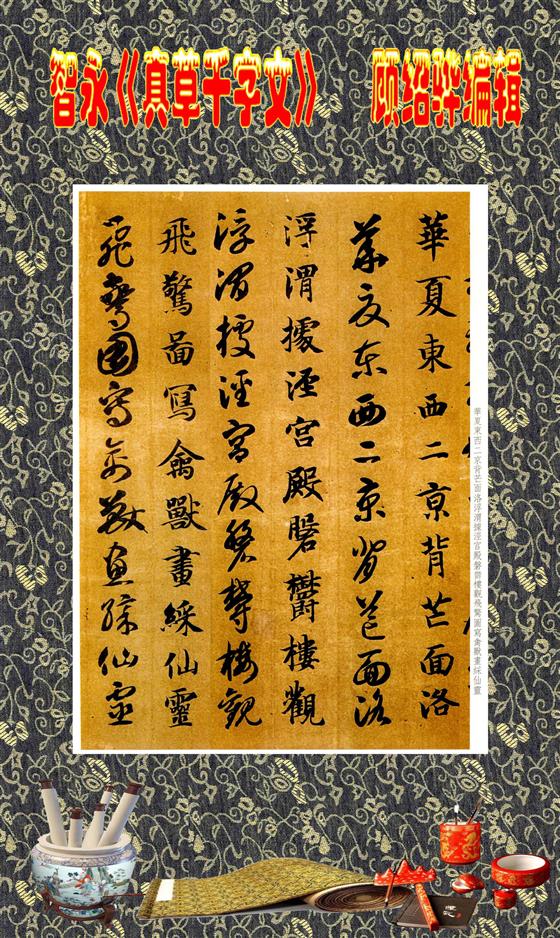 智永《真草千字文》 顾绍骅编辑
華夏東西二京背芒面洛
華夏東西二京背芒面洛
浮渭據涇宮殿磐鬱樓觀
浮渭據涇宮殿磐鬱樓觀
飛驚圖寫禽獸畫綵仙靈
飛驚圖寫禽獸畫綵仙靈
華夏東西二京背芒面洛浮渭據涇宮殿磐鬱樓觀飛驚圖寫禽獸畫綵仙靈